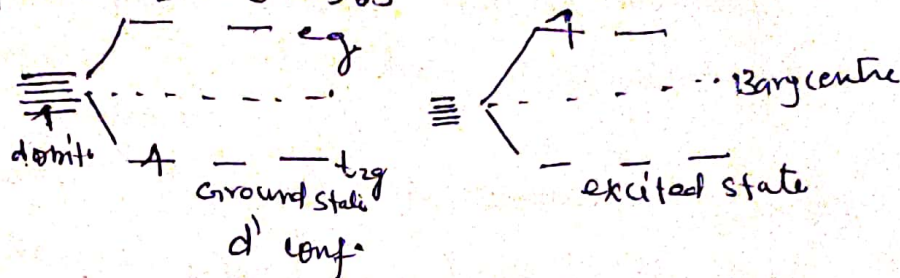 eg
Barycentre
dorbits
t2g
Ground State
excited state
d' conf.